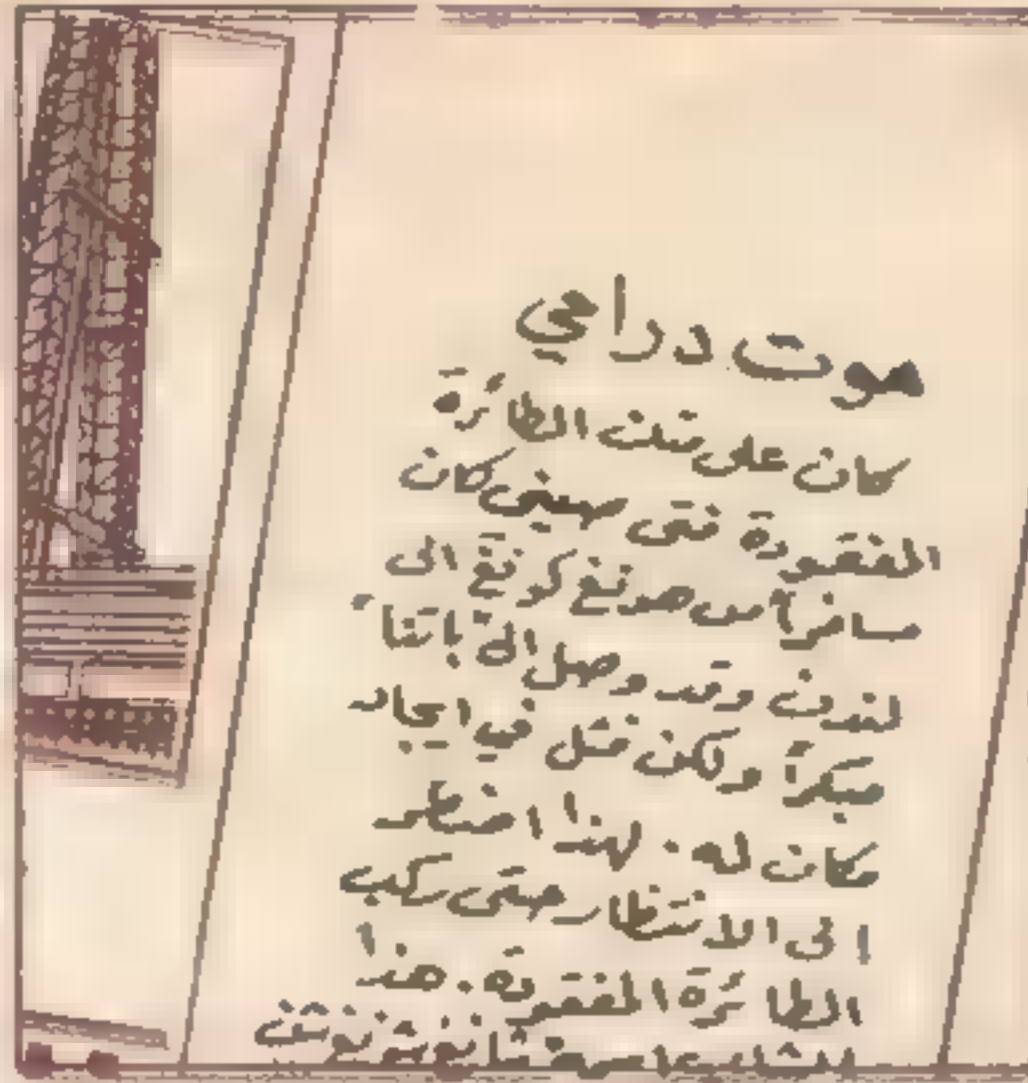 موت درامي
كان على متن الطائرة
المفقودة فتى صيني كان
مسافراً من هونغ كونغ الى
لندن وقد وصل الى باتنا
مبكراً ولكن فشل في ايجاد
مكان له. لهذا اضطر
الى الانتظار حتى ركب
الطائرة المفقودة. هذا
الشاب اسمه